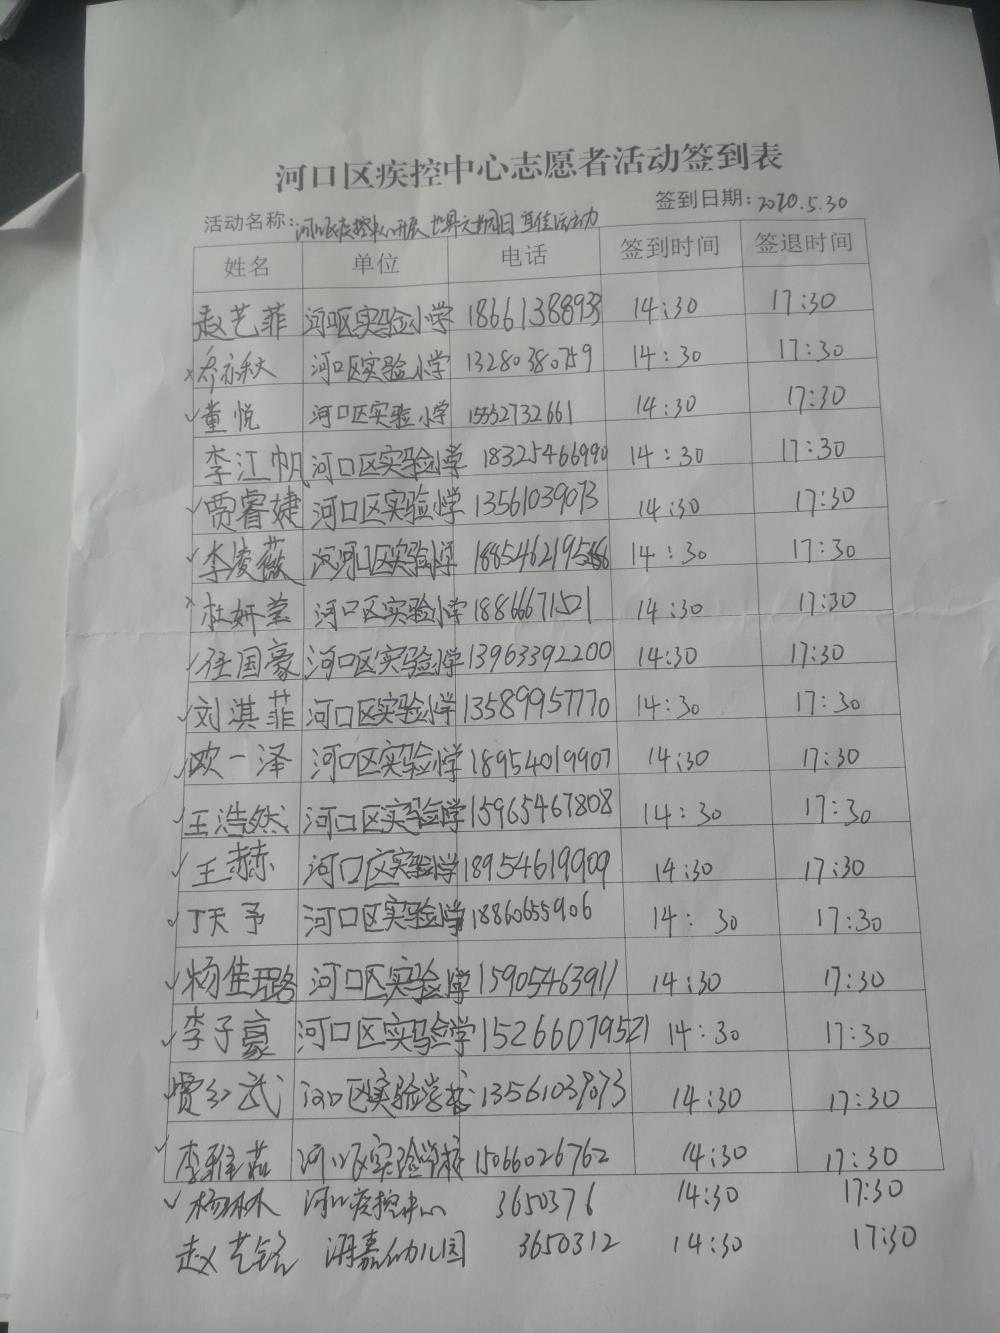 河口区疾控中心志愿者活动签到表
活动名称:河口区疾控中心开展世界无烟日宣传活动 签到日期:2020.5.30
姓名 单位 电话 签到时间 签退时间
赵艺菲 河口区实验小学 18661388933 14:30 17:30
乔亦秋 河口区实验小学 13280380759 14:30 17:30
董悦 河口区实验小学 15552732661 14:30 17:30
李江帆 河口区实验小学 18325466990 14:30 17:30
贾睿婕 河口区实验小学 13561039073 14:30 17:30
李凌薇 河口区实验小学 14:30 17:30
杜妍莹 河口区实验小学 18866671521 14:30 17:30
任国豪 河口区实验小学 13963392200 14:30 17:30
刘淇菲 河口区实验小学 13589957770 14:30 17:30
欧一泽 河口区实验小学 18954019907 14:30 17:30
王浩然 河口区实验学 15965467808 14:30 17:30
王赫 河口区实验学 18954619909 14:30 17:30
丁天予 河口区实验小学 18860655906 14:30 17:30
杨佳璐 河口区实验学 15905463911 14:30 17:30
李子豪 河口区实验学 15266079521 14:30 17:30
贾红武 河口区实验学校 13561039073 14:30 17:30
李雅茹 河口区实验学校 15066026762 14:30 17:30
杨林林 河口疾控中心 3650376 14:30 17:30
赵艺铭 湖嘉幼儿园 3650312 14:30 17:30